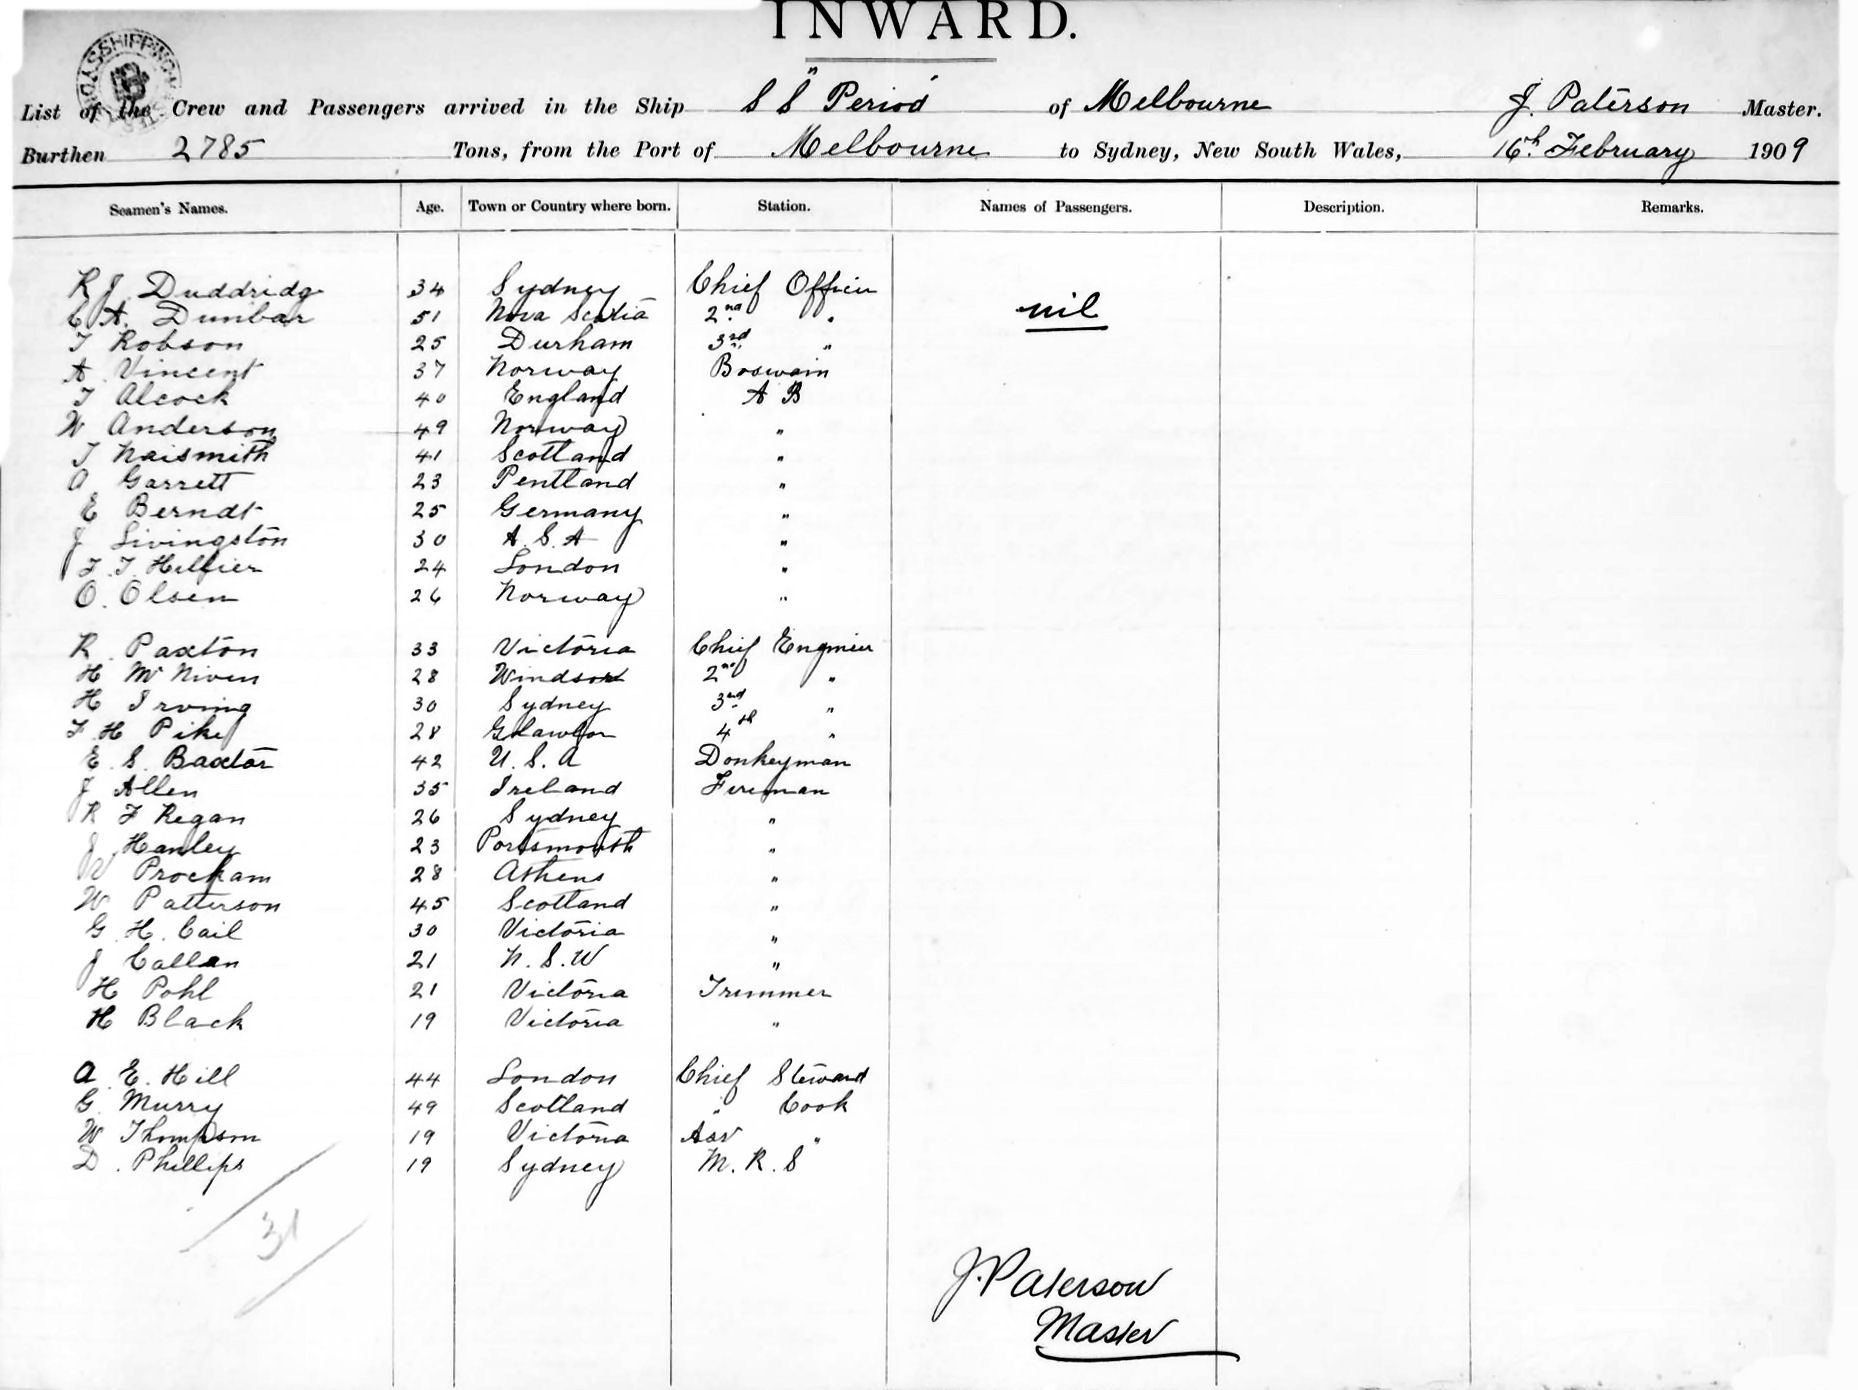 INWARD.
List of the Crew and Passengers arrived in the Ship S S "Period" of Melbourne J. Paterson Master.
Burthen 2785 Tons, from the Port of Melbourne to Sydney, New South Wales, 16th February 1909
Seamen's Names. Age. Town or Country where born. Station. Names of Passengers. Description. Remarks.
R J Duddridge 34 Sydney Chief Officer
C A. Dunbar 51 Nova Scotia 2nd "
nil
T Robson 25 Durham 3rd "
A Vincent 37 Norway Boswain
T Alcock 40 England A B
W Anderson 49 Norway "
T Naismith 41 Scotland "
A Garrett 23 Pentland "
E Berndt 25 Germany "
J Livingston 30 A. S. A "
F. T. Hellier 24 London "
O. Olsen 26 Norway "
R. Paxton 33 Victoria Chief Engineer
H McNiven 28 Windsor 2nd "
H Irving 30 Sydney 3rd "
F. H Pike 28 4th "
E. S. Baxtor 42 U. S. A Donkeyman
J Allen 35 Ireland Fireman
R F Regan 26 Sydney "
J Hanley 23 Portsmouth "
28 Athens "
W Patterson 45 Scotland "
G. H. Cail 30 Victoria "
J Callan 21 N. S. W "
H Pohl 21 Victoria Trimmer
H Black 19 Victoria "
A. E. Hill 44 London Chief Steward
G. Murry 49 Scotland " Cook
W Thompson 19 Victoria Ass "
D. Phillips 19 Sydney M. R. S
31
J. Paterson
Master